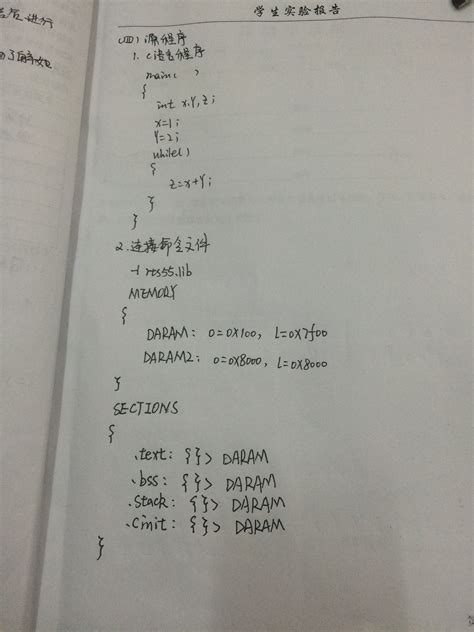 学生实验报告
告后,进行
(四)源程序
1. C语言程序
main( )
{
int x,Y,Z;
x=1;
Y=2;
while()
{
Z=x+Y;
}
}
2.连接命令文件
-l rts55.lib
MEMORY
{
DARAM: O=0X100, L=0X7f00
DARAM2: O=0X8000, L=0X8000
}
SECTIONS
{
.text: {}> DARAM
.bss: {}> DARAM
.stack: {}> DARAM
.Cinit: {}> DARAM
}